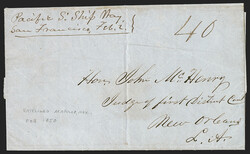 Pacific St. Ship Way
San Francisco, Feb. 2
40
Hon. John McHenry
Judge of first district Court
New Orleans
LA.